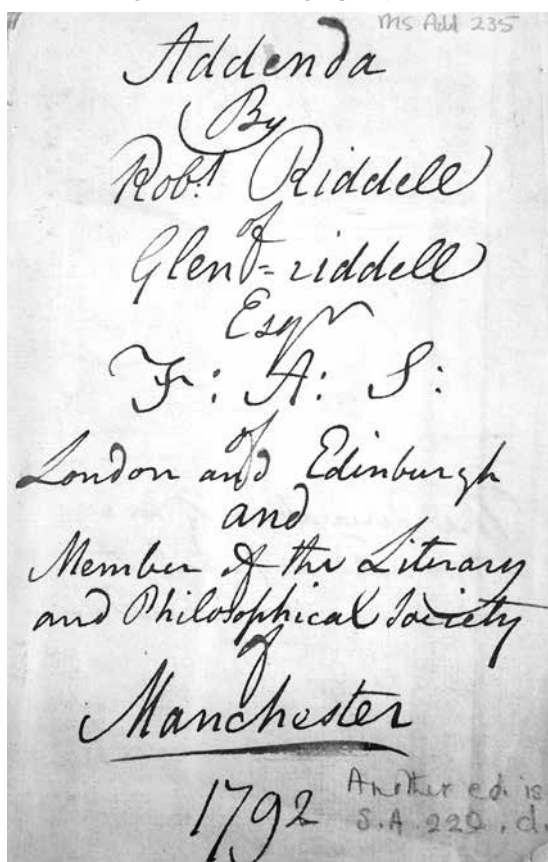 MS Add 235
Addenda
By
Robt. Riddell
of
Glen=riddell
Esqr
F: A: S:
of
London and Edinburgh
and
Member of the Literary
and Philosophical Society
of
Manchester
1792
Another ed. is
S.A. 220. d.